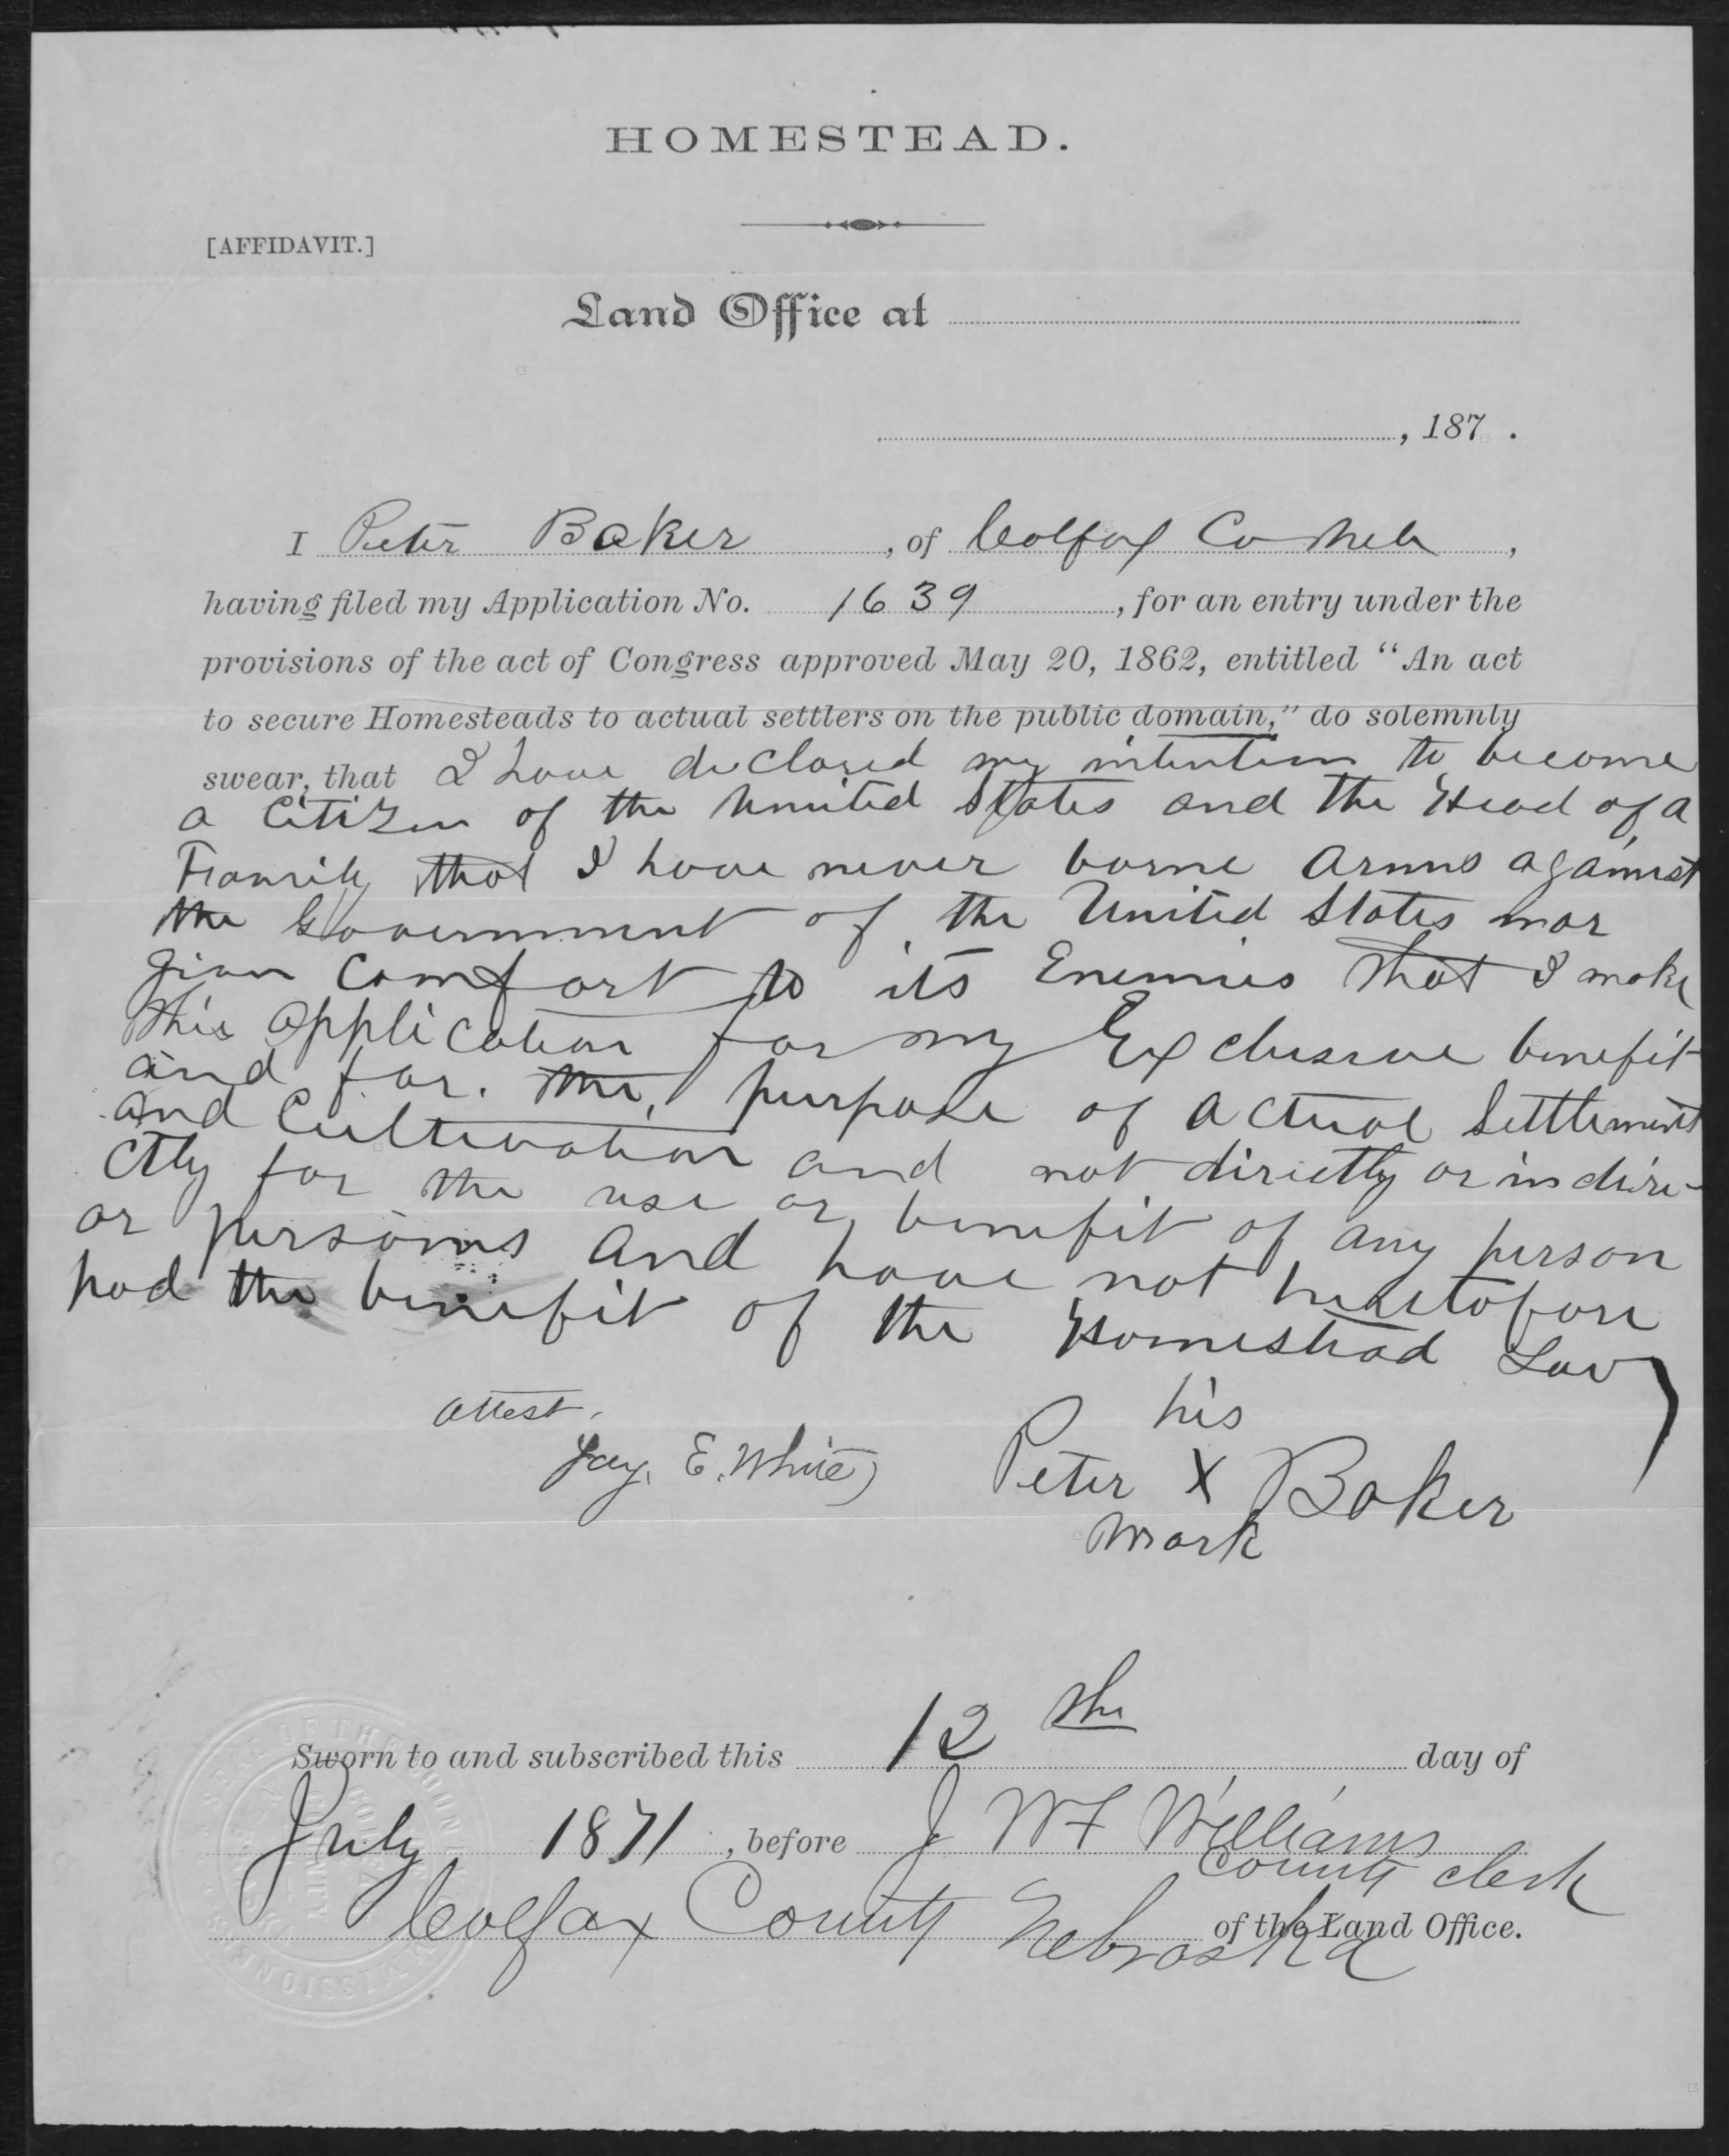 HOMESTEAD.
[AFFIDAVIT.]
Land Office at
, 187 .
I Peter Baker , of Colfax Co Neb ,
having filed my Application No. 1639 , for an entry under the
provisions of the act of Congress approved May 20, 1862, entitled “An act
to secure Homesteads to actual settlers on the public domain,” do solemnly
swear, that I have declared my intention to become
a Citizen of the United States and the Head of a
Family that I have never borne Arms against
the Government of the United States nor
given Comfort to its Enemies that I make
this application for my Exclusive benefit
and for the purpose of actual Settlement
and Cultivation and not directly or indire-
ctly for the use or benefit of any person
or persons and have not heretofore
had the benefit of the Homestead Law
attest.
Jay. E. White
his
Peter X Baker
mark
Sworn to and subscribed this 12 th day of
July 1871 , before J W F Williams
County Clerk
Colfax County Nebraska of the Land Office.